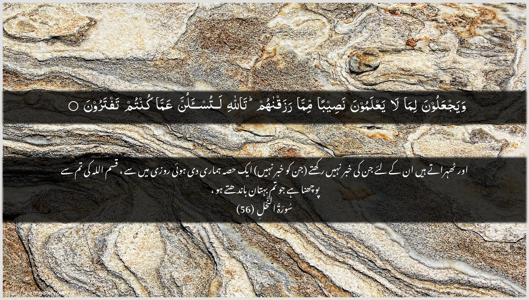 وَيَجْعَلُوْنَ لِمَا لَا يَعْلَمُوْنَ نَصِيْبًا مِّمَّا رَزَقْنٰهُمْ ؕ تَاللّٰهِ لَـتُسْـَٔلُنَّ عَمَّا كُنْتُمْ تَفْتَرُوْنَ ○
اور ٹھہراتے ہیں ان کے لئے جن کی خبر نہیں رکھتے (جن کو خبر نہیں) ایک حصہ ہماری دی ہوئی روزی میں سے ، قسم اللہ کی تم سے
پوچھنا ہے جو تم بہتان باندھتے ہو ،
سُورَةُ النَّحْل (56)